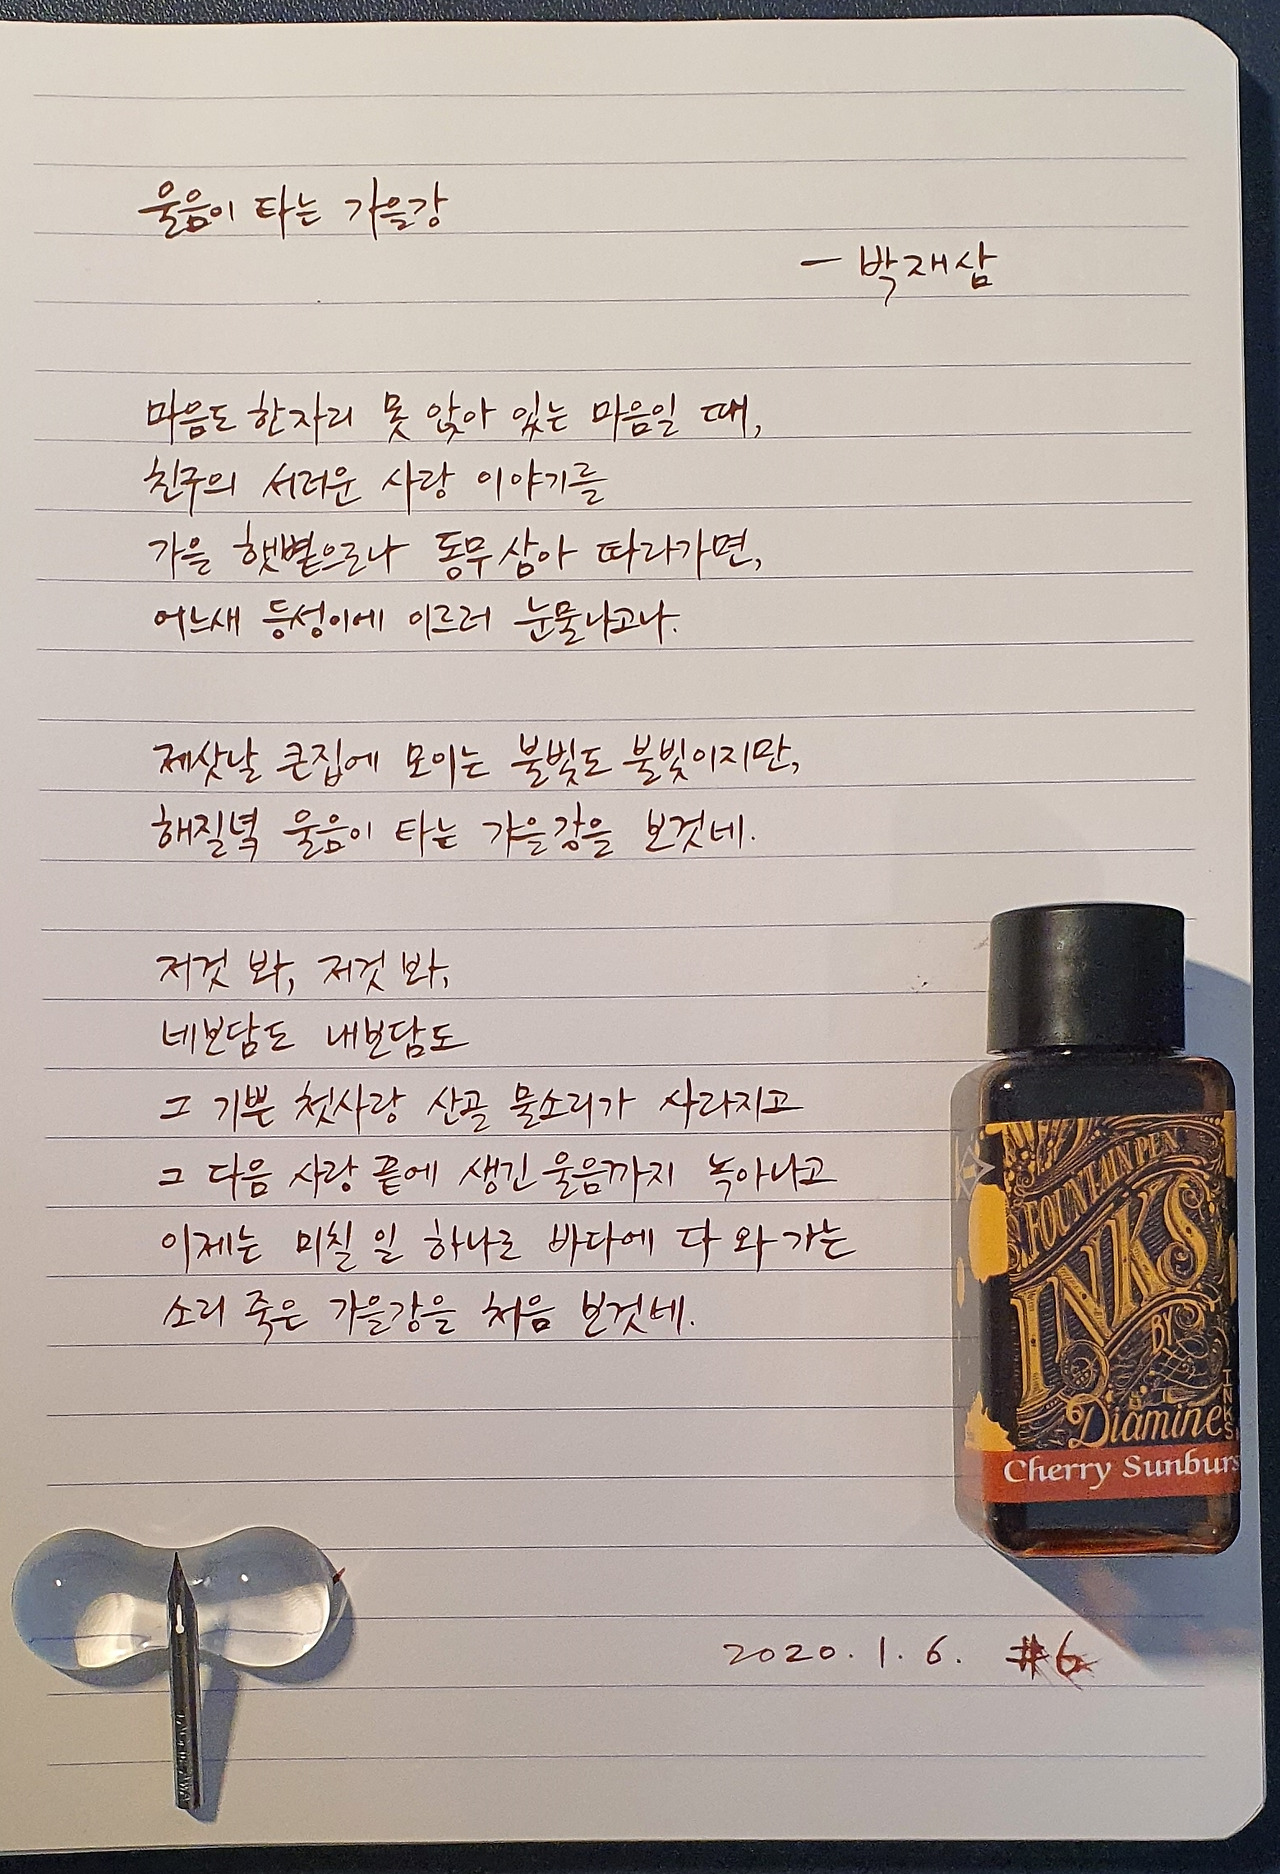 울음이 타는 가을강
- 박재삼
마음도 한자리 못 앉아 있는 마음일 때,
친구의 서러운 사랑 이야기를
가을 햇볕으로나 동무삼아 따라가면,
어느새 등성이에 이르러 눈물나고나.
제삿날 큰집에 모이는 불빛도 불빛이지만,
해질녘 울음이 타는 가을강을 보것네.
저것 봐, 저것 봐,
네보담도 내보담도
그 기쁜 첫사랑 산골 물소리가 사라지고
그 다음 사랑 끝에 생긴 울음까지 녹아나고
이제는 미칠 일 하나로 바다에 다 와 가는
소리 죽은 가을강을 처음 보것네.
FOUNTAIN PEN
INKS
BY
Diamine
INKS
Cherry Sunburs
2020. 1. 6. #6